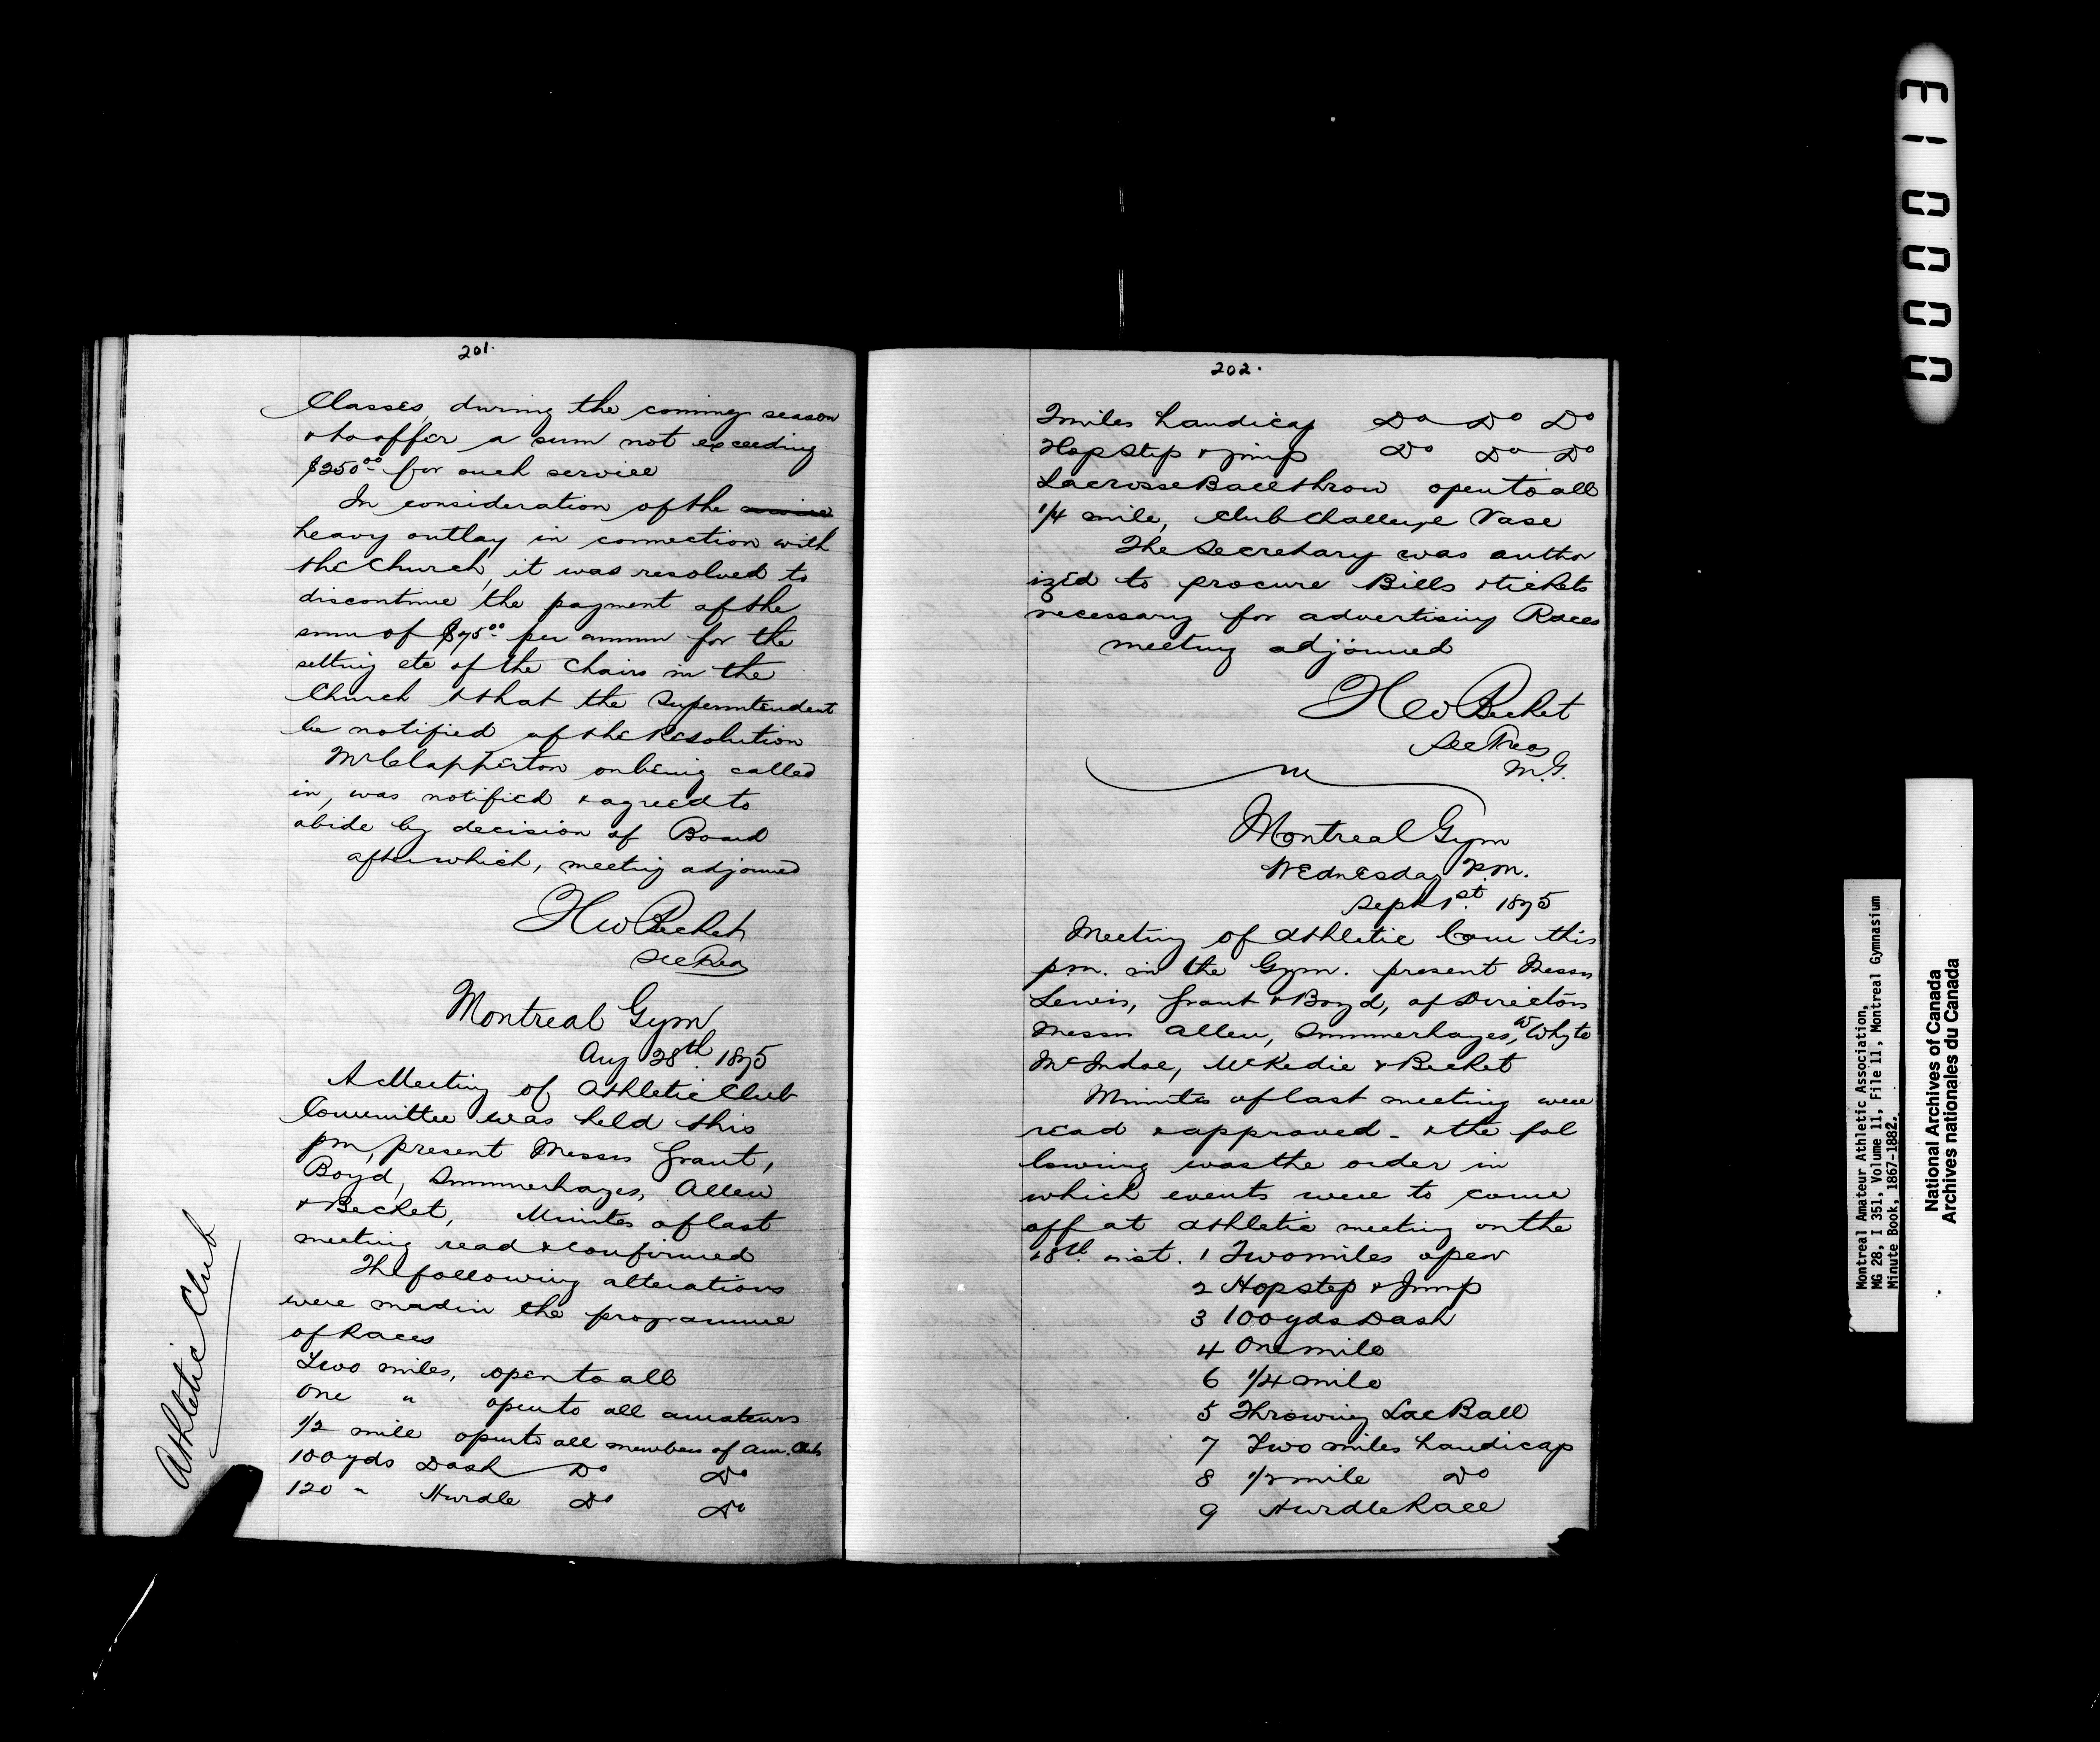 201.
Classes, during the coming season
& to offer a sum not exceeding
$250.00 for such service
In consideration of the
heavy outlay in connection with
the Church, it was resolved to
discontinue the payment of the
sum of $75.00 per annum for the
setting etc of the Chairs in the
Church & that the Superintendent
be notified of the Resolution
Mr Clapperton on being called
in, was notified & agreed to
abide by decision of Board
after which, meeting adjourned
HW Becket
Sec Treas
Montreal Gym
Aug 28th. 1875
A Meeting of Athletic Club
Committee was held this
pm, present Messrs Grant,
Boyd, Summerhayes, Allen
& Becket, Minutes of last
meeting read & confirmed
The following alterations
were mad in the programme
of Races
Two miles, open to all
One " open to all amateurs
1/2 mile open to all members of Am. Clubs
100 yds Dash Do Do
120 " Hurdle Do Do
Athletic Club
202.
2 miles handicap Do Do Do
Hop Step & jump Do Do Do
Lacrosse Ball throw open to all
1/4 mile, Club Challenge Vase
The Secretary was author
ized to procure Bills & tickets
necessary for advertising Races
meeting adjourned
HW Becket
Sec Treas
M.G.
Montreal Gym
Wednesday P.M.
Sept 1st. 1875
Meeting of Athletic Com this
p.m. in the Gym. present Messrs
Lewis, Grant & Boyd, of Directors
Messrs Allen, Summerhayes, W Whyte
McIndoe, McKedie & Becket
Minutes of last meeting were
read & approved - & the fol
lowing was the order in
which events were to come
off at athletic meeting on the
18th. inst. 1 Two miles open
2 Hop step & Jump
3 100 yds Dash
4 One mile
6 1/4 mile
5 Throwing Lac Ball
7 Two miles handicap
8 1/2 mile Do
9 Hurdle Race
Montreal Amateur Athletic Association,
MG 28, I 351, Volume 11, File 11, Montreal Gymnasium
Minute Book, 1867-1882.
National Archives of Canada
Archives nationales du Canada
000013